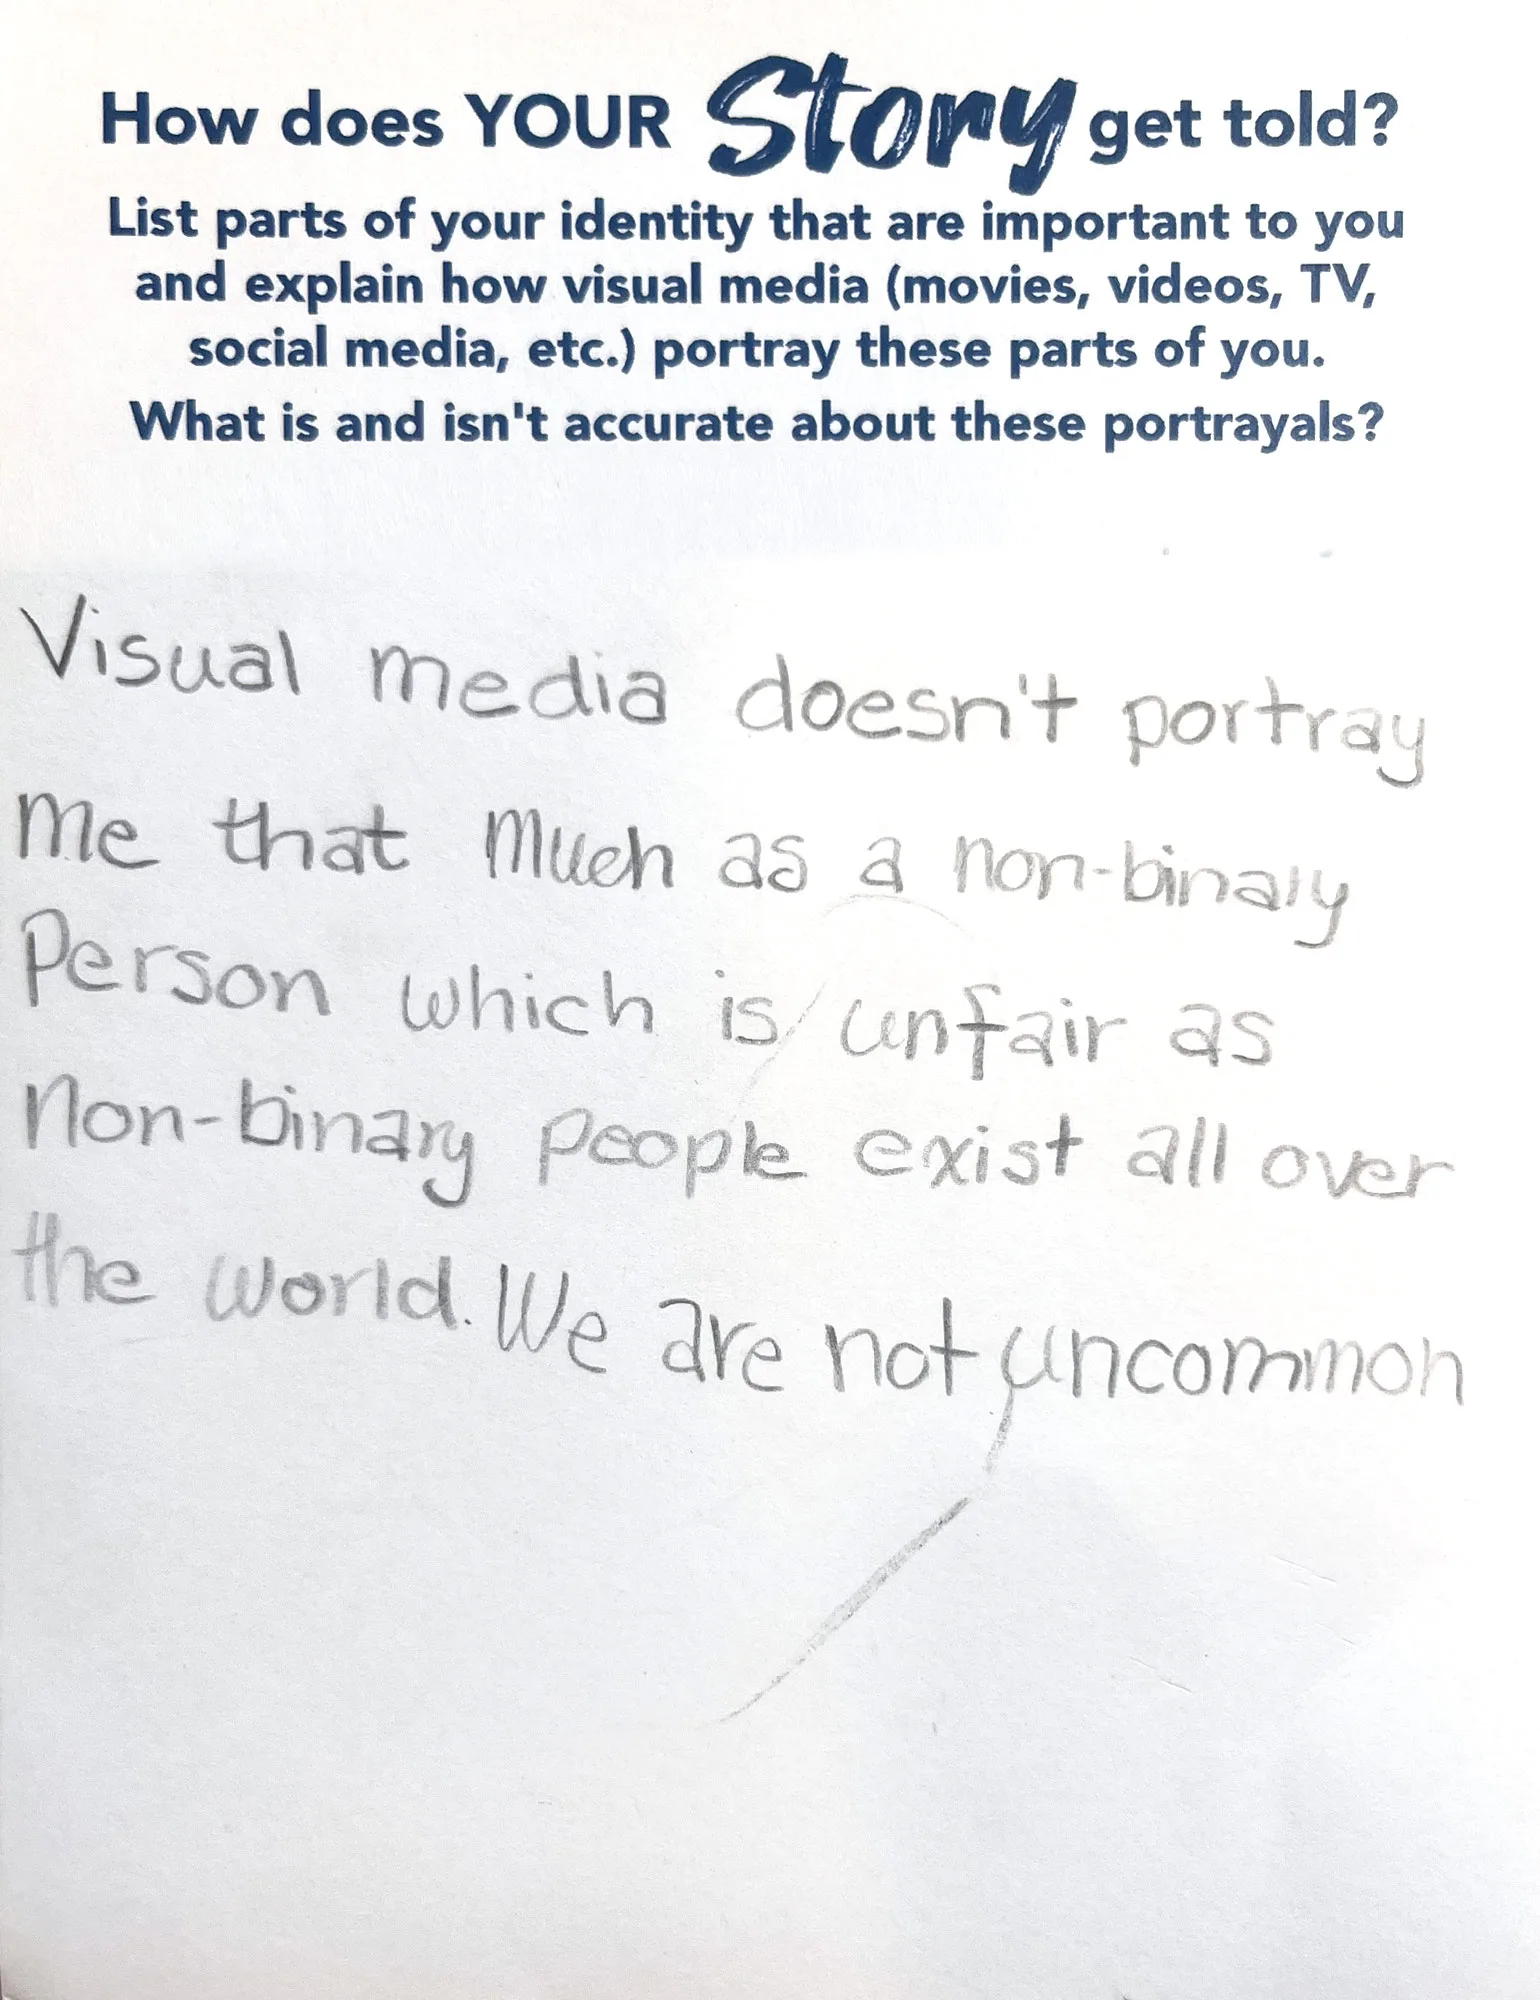 How does YOUR Story get told?
List parts of your identity that are important to you
and explain how visual media (movies, videos, TV,
social media, etc.) portray these parts of you.
What is and isn't accurate about these portrayals?
Visual media doesn't portray
me that much as a non-binary
Person which is unfair as
non-binary people exist all over
the world. We are not uncommon